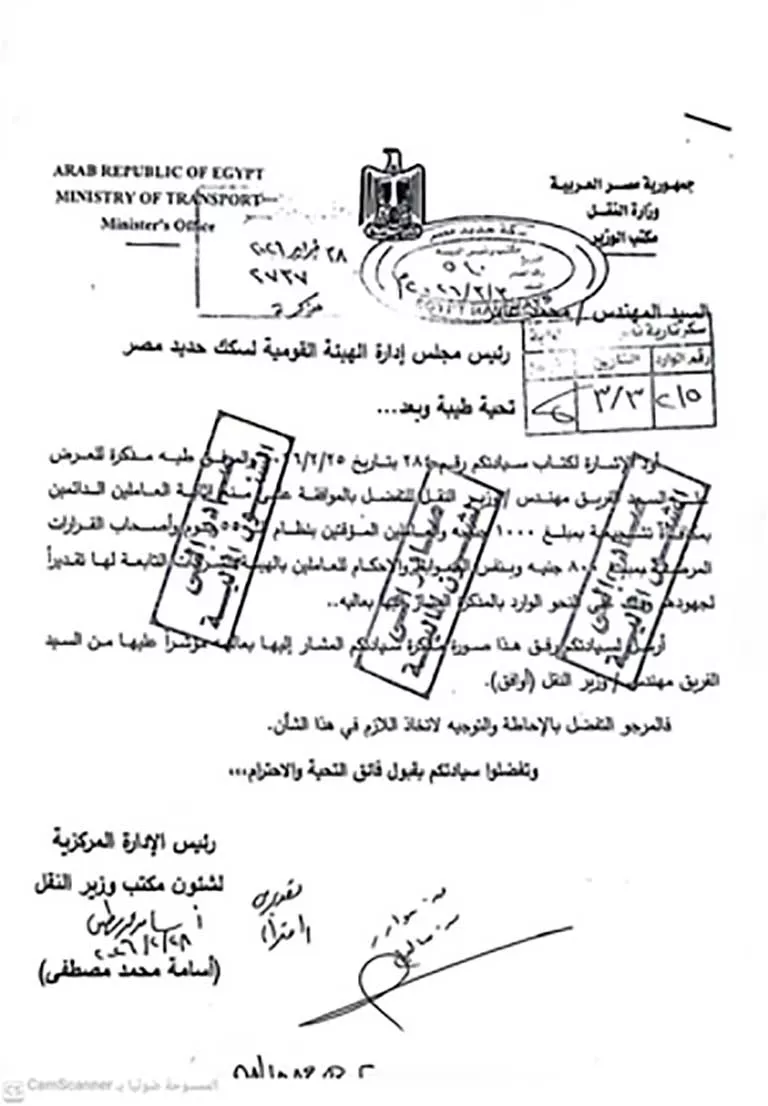 ARAB REPUBLIC OF EGYPT
MINISTRY OF TRANSPORT
Minister's Office
جمهورية مصر العربية
وزارة النقل
مكتب الوزير
٢٨ فبراير ٢٠٢٦
٢٧٣٧
مذكرة
سكة حديد مصر
٥٦٠
٢٠٢٦/٣/٢م
السيد المهندس / محمد عامر
رئيس مجلس إدارة الهيئة القومية لسكك حديد مصر
رقم الوارد التاريخ
٢١٥ ٣/٣
تحية طيبة وبعد...
أود الإشارة لكتاب سيادتكم رقم ٢٨٤ بتاريخ ٢/٢٥ والمرفق طيه مذكرة للعرض
السيد الفريق مهندس / وزير النقل للتفضل بالموافقة على منح إثابة العاملين الدائمين
بمكافأة تشجيعية بمبلغ ١٠٠٠ جنيه والعاملين المؤقتين بنظام وأصحاب القرارات
بمبلغ ٨٠٠ جنيه وبنفس الضوابط والاحكام للعاملين بالهيئة والشركات التابعة لها تقديراً
لجهودهم النحو الوارد بالمذكرة المشار إليها بعاليه..
أرسل لسيادتكم رفق هذا صورة مذكرة سيادتكم المشار إليها بعاليه مؤشراً عليها من السيد
الفريق مهندس / وزير النقل (أوافق).
فالمرجو التفضل بالإحاطة والتوجيه لاتخاذ اللازم في هذا الشأن.
وتفضلوا سيادتكم بقبول فائق التحية والاحترام...
صادر إلى
الشئون المالية
صادر إلى
الشئون المالية
صادر إلى
الشئون المالية
رئيس الإدارة المركزية
لشئون مكتب وزير النقل
٢٠٢٦/٢/٢٨
(أسامة محمد مصطفى)
الممسوحة ضوئيا بـ CamScanner